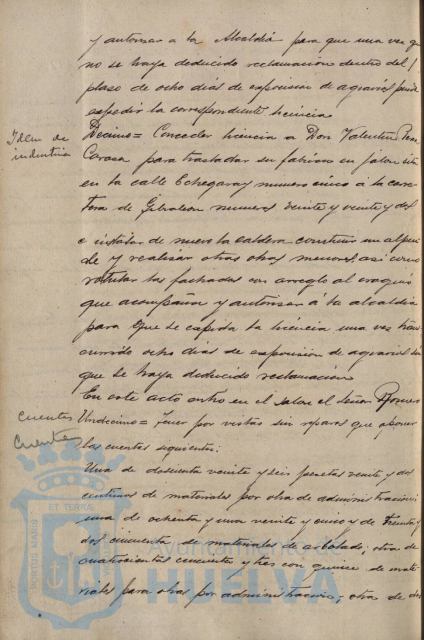 y autorizar a la Alcaldía para que una vez q
no se haya deducido reclamación dentro del
plazo de ocho días de exposición de agravios pueda
expedir la correspondiente licencia
Idem de
industria
Décimo = Conceder licencia a Don Valentín
Carasa para trasladar su fábrica en jabon sita
en la calle Echegaray numero cinco á la carre
tera de Gibraleon numeros veinte y veinte y dos
e instalar de nuevo la caldera construir un alpen
de y realizar otras obras menores, así como
rotular las fachadas con arreglo al croquis
que acompaña y autorizar á la alcaldía
para que se expida la licencia una vez trans
currido ocho días de exposición de agravios sin
que se haya deducido reclamación
En este acto entro en el salon el señor Romero
Cuentas
Cuentas
Undecimo = Tener por vistas sin reparos que oponer
las cuentas siguientes:
Una de doscienta veinte y seis pesetas veinte y dos
centimos de materiales por obra de administracion;
una de ochenta y una veinte y cinco y de treinta y
dos cincuenta de materiales de arbolado; otra de
cuatrocientas cincuenta y tres con quince de mate
riales para obras por administracion; otra de dos
Ayuntamiento de
HUELVA
PORTUS MARIS ET TERRAE